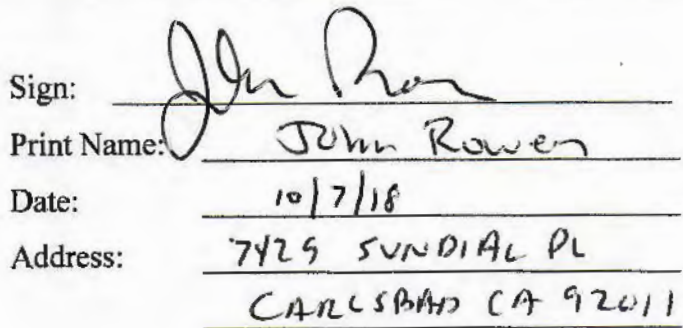 Sign: John Rowen
Print Name: John Rowen
Date: 10/7/18
Address: 7429 SUNDIAL PL
CARLSBAD CA 92011